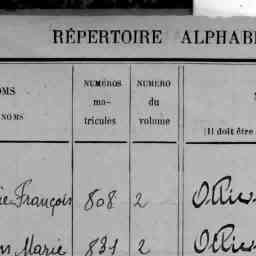 RÉPERTOIRE ALPHAB
OMS
NOMS
NUMÉROS
ma-
tricules
NUMÉRO
du
volume
(Il doit être
François 808 2
Marie 831 2